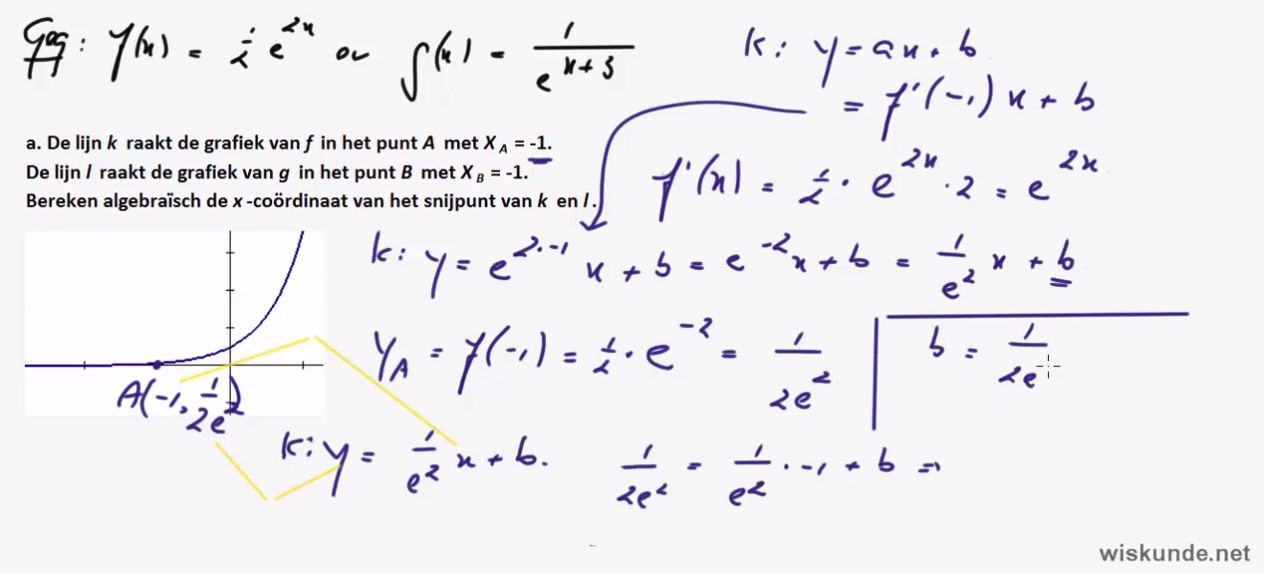 Geg: f(x) = 1/2 e^2x en g(x) = 1/e^x+3
k: y = ax + b
= f'(-1) x + b
a. De lijn k raakt de grafiek van f in het punt A met X_A = -1.
De lijn l raakt de grafiek van g in het punt B met X_B = -1.
Bereken algebraïsch de x-coördinaat van het snijpunt van k en l.
f'(x) = 1/2 · e^2x · 2 = e^2x
k: y = e^2·-1 x + b = e^-2 x + b = 1/e^2 x + b
y_A = f(-1) = 1/2 · e^-2 = 1/2e^2
b = 1/2e
A(-1, 1/2e^2)
k: y = 1/e^2 x + b.
1/2e^2 = 1/e^2 · -1 + b ⇒
wiskunde.net